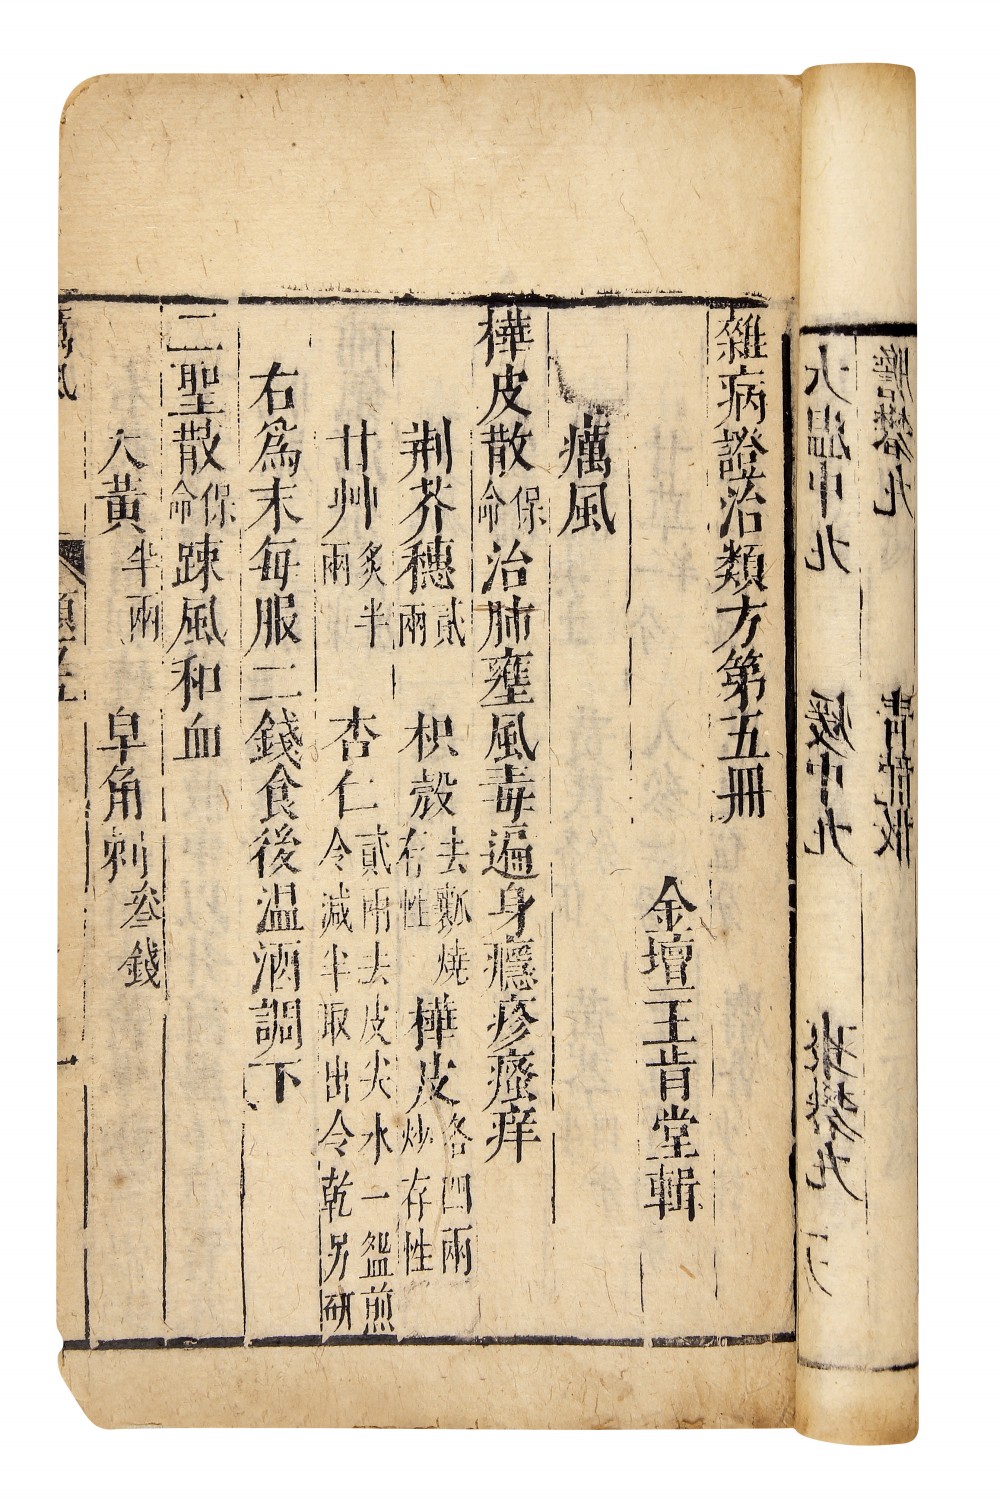 雜病證治類方第五冊
金壇王肯堂輯
癘風
樺皮散保命治肺壅風毒遍身癮疹瘙痒
荆芥穗貳兩　枳殼去瓤燒存性　樺皮各四兩炒存性
甘艸炙半兩　杏仁貳兩去皮尖水一盌煎令減半取出令乾另研
右為末每服二錢食後温酒調下
二聖散保命踈風和血
大黃半兩　皁角刺叄錢